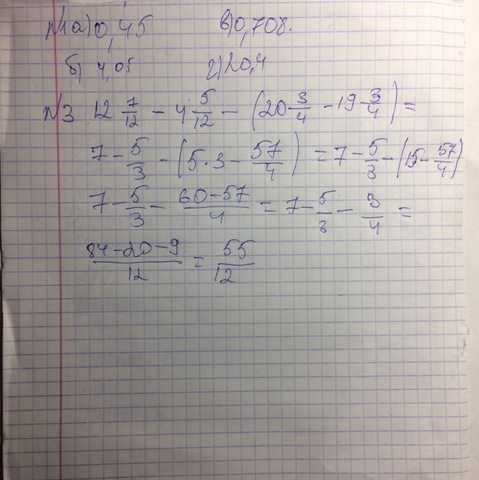 №1 а) 0,45 в) 0,708.
б) 4,05 г) 20,4
№3 12 7/12 - 4 5/12 - (20 3/4 - 19 3/4) =
7 - 5/3 - (5·3 - 57/4) = 7 - 5/3 - (15 - 57/4)
7 - 5/3 - 60-57/4 = 7 - 5/3 - 3/4 =
84-20-9/12 = 55/12